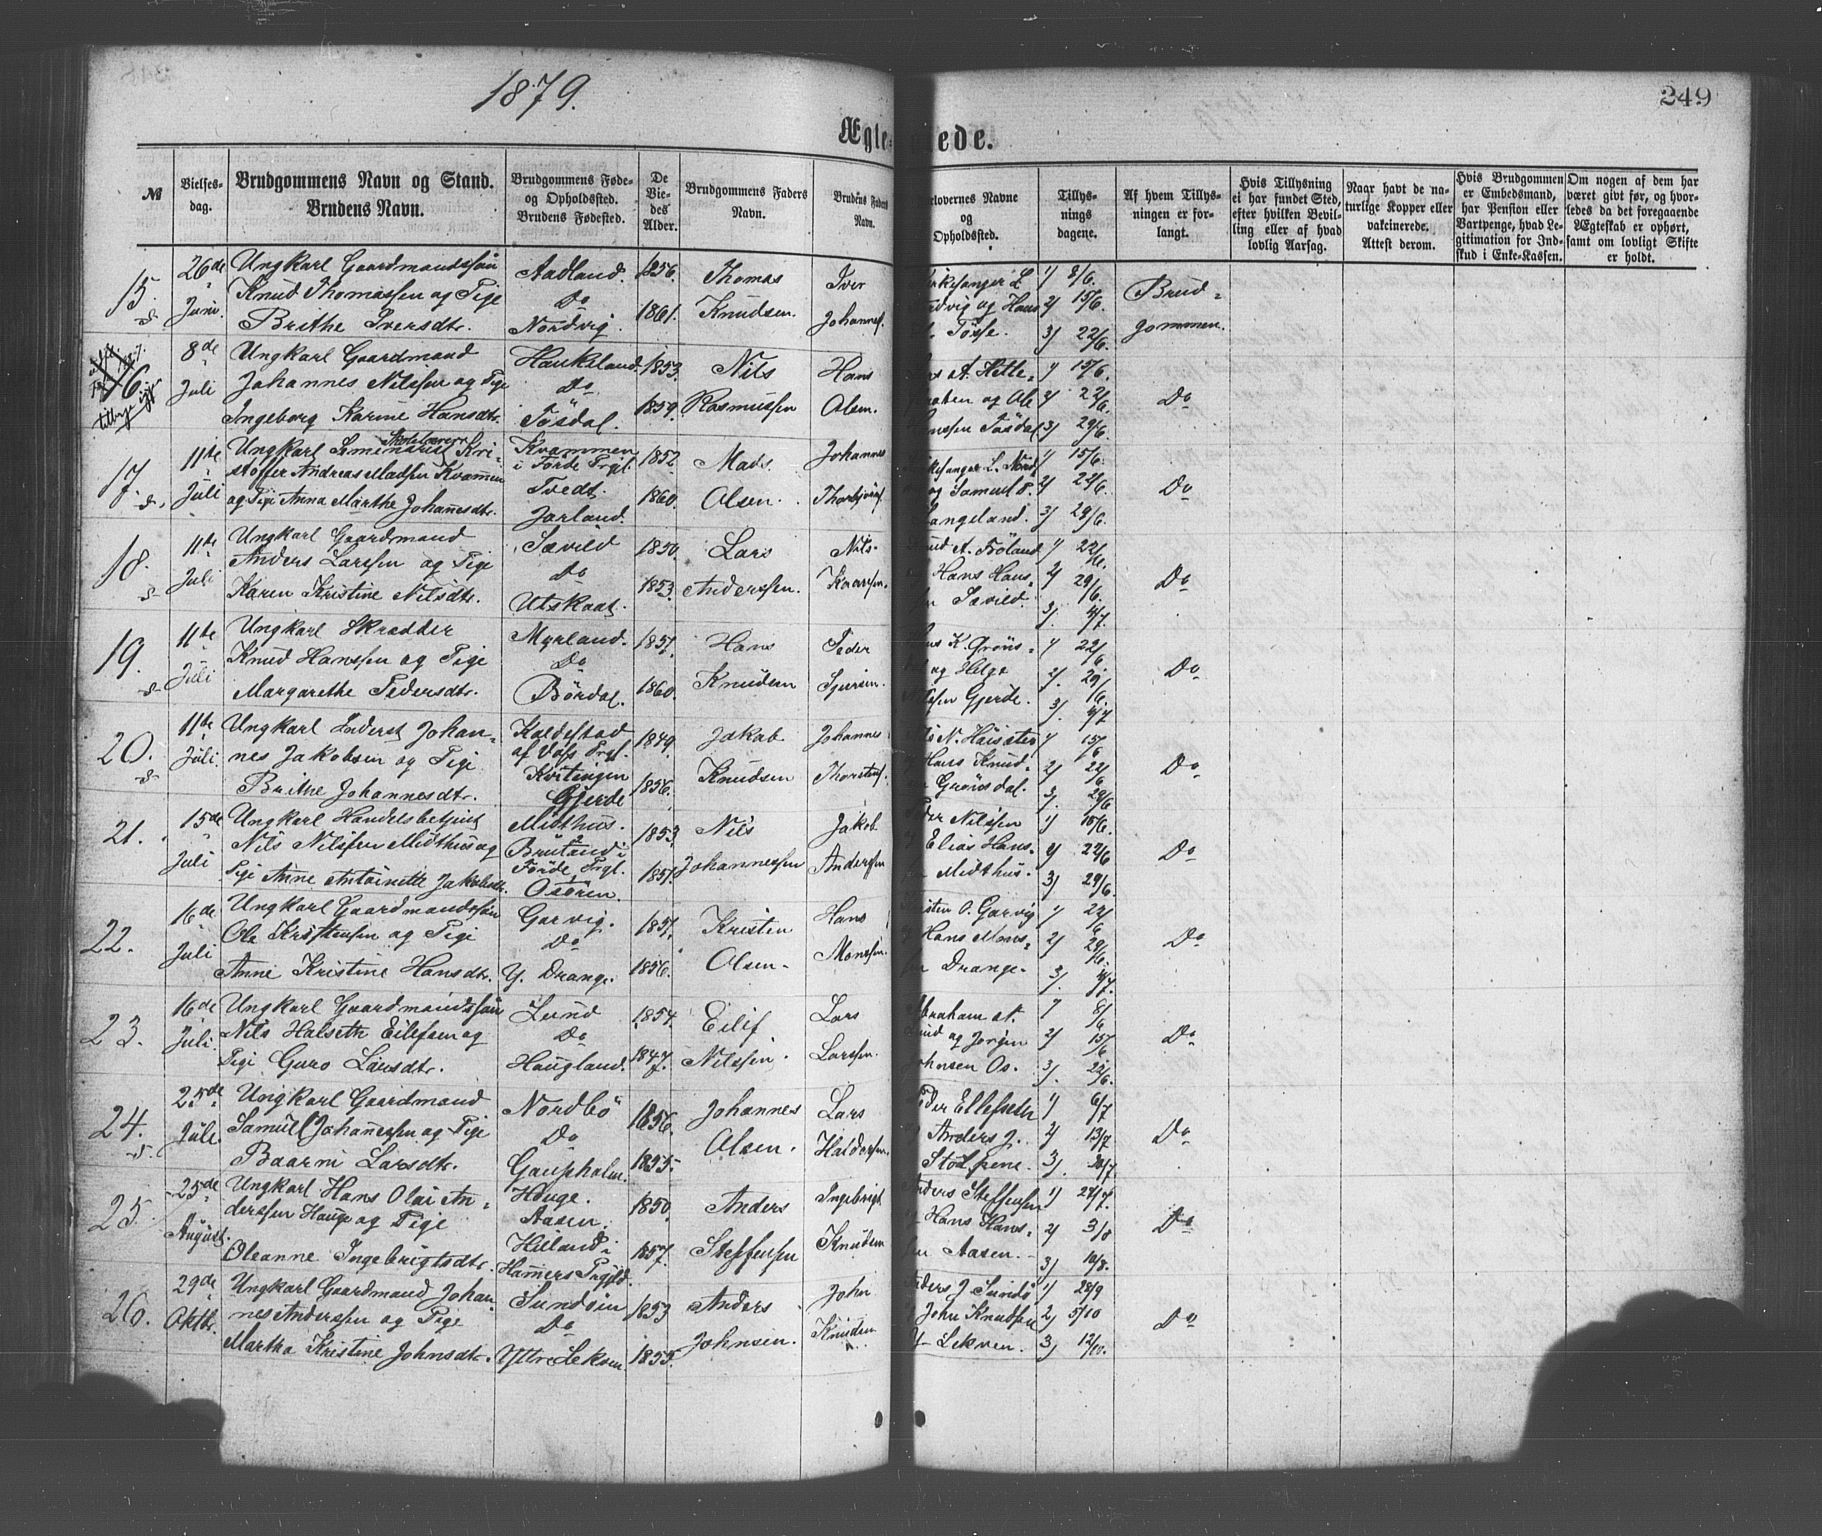 1879.
249
Ægte- ede.
№
Vielses-
dag.
Brudgommens Navn og Stand.
Brudens Navn.
Brudgommens Føde-
og Opholdssted.
Brudens Fødested.
De
Vie-
des
Alder.
Brudgommens Faders
Navn.
Brudens Faders
Navn.
rlovernes Navne
og
Opholdssted.
Tillys-
nings
dagene.
Af hvem Tillys-
ningen er for-
langt.
Hvis Tillysning
ei har fundet Sted,
efter hvilken Bevil-
ling eller af hvad
lovlig Aarsag.
Naar havt de na-
turlige Kopper eller
vakcinerede.
Attest derom.
Hvis Brudgommen
er Embedsmand,
har Pension eller
Vartpenge, hvad Le-
gitimation for Ind-
skud i Enke-Kassen.
Om nogen af dem har
været givt før, og hvor-
ledes da det foregaaende
Ægteskab er ophørt,
samt om lovligt Skifte
er holdt.
15.
26de
Juni
Ungkarl Gaardmandssøn
Knud Thomassen og Pige
Brithe Iversdtr.
Aadland.
Do
Nordvig.
1856.
1861.
Thomas
Knudsen.
Iver
Johannes.
irkesanger L.
rdvig og Hans
Tøsse.
1) 8/6.
2) 15/6.
3) 22/6.
Brud-
gommen.
16.
8de
Juli
Ungkarl Gaardmand
Johannes Nilssen og Pige
Ingeborg Karine Hansdtr.
Haukeland.
Do
Tøsdal.
1853.
1859.
Nils
Rasmussen
Hans
Olsen.
A. Hette-
og Ole
Tøsdal
1) 15/6.
2) 22/6.
3) 29/6.
Do
17.
11te
Juli
Ungkarl Seminarist Kri-
Skolelærer
stoffer Andreas Madsen Kvammen
og Pige Anna Marthe Johannesdtr.
Kvammen
i Førde Prgl.
Tvedt.
Jarland.
1852.
1860.
Mads
Olsen.
Johannes
Thorbjørns.
kesanger L. Nord
og Samuel
angeland.
1) 15/6.
2) 22/6.
3) 29/6.
Do
18.
11te
Juli
Ungkarl Gaardmand
Anders Larssen og Pige
Karen Kristine Nilsdtr.
Sævild
Do
Utskaat.
1850.
1853.
Lars
Anderssen.
Nils
Knud A. Frøland
Hans Hans-
Sævild.
1) 22/6.
2) 29/6.
3) 4/7.
Do
19.
11te
Juli
Ungkarl Skrædder
Knud Hanssen og Pige
Margarethe Pedersdtr.
Myrland.
Do
Børdal.
1857.
1860.
Hans
Knudsen
Peder
K. Grøns-
og Helge
Gjerde.
1) 22/6
2) 29/6
3) 4/7
Do
20.
11te
Juli.
Ungkarl Inderst Johan-
nes Jakobsen og Pige
Brithe Johannesdtr.
Kaldestad
af Voss Prgl.
Kvitingen
Gjerde
1849.
1856.
Jakob
Knudsen
Johannes
Thorstens.
N.
Hans Knud-
Grønsdal.
1) 15/6
2) 22/6
3) 29/6
Do
21.
15de
Juli
Ungkarl Handelsbetjent
Nils Nilssen Midthus og
Pige Anne Antoinette Jakobsdtr.
Midthus.
i
Førde Prgl.
Osøren.
1853.
1857.
Nils
Johannessen
Jakob
Anderssen
Peder Nilssen
Elias Hans-
Midthus.
1) 15/6.
2) 22/6
3) 29/6.
Do
22.
16de
Juli
Ungkarl Gaardmandssøn
Ole Kristensen og Pige
Anne Kristine Hansdtr.
Garvig.
Do
Y. Drange.
1857.
1856.
Kristen
Olsen.
Hans
Monssen
risten O. Garvig
Hans Mons-
Drange.
1) 22/6
2) 29/6
3) 4/7.
Do
23.
16de
Juli
Ungkarl Gaardmandssøn
Nils Halseth Eilefsen og
Pige Guro Larsdtr.
Lund
Do
Haugland.
1854.
1847.
Eilif
Nilssen.
Lars
Larssen.
Abraham A.
og Jørgen
ohnsen Os.
1 8/6
2) 15/6
3) 22/6.
Do
24.
25de
Juli
Ungkarl Gaardmand
Samuel Johannessen og Pige
Baarni Larsdtr.
Nordbø
Do
Gaupholm.
1856.
1855.
Johannes
Olsen.
Lars
Haldorsen.
Peder Ellefseth
Anders J.
1) 6/7
2) 13/7
3) 20/7
Do
25.
25de
August.
Ungkarl Hans Olai An-
derssen Hauge og Pige
Oleanne Ingebrigtsdtr.
Hauge.
Aasen.
Hilland i
Hammers Prgjld.
1850.
1857.
Anders
Steffensen
Ingebrigt
Knudsen
Anders Steffensen
Hans Hans-
Aasen.
1) 27/7.
2) 3/8
3) 10/8.
Do
26.
29de
Oktbr.
Ungkarl Gaardmand Johan-
nes Anderssen og Pige
Martha Kristine Johnsdtr.
Sundøin
Do
Ytre Lekven
1853
1855.
Anders
Johnsen.
John
Knudsen
nders J. Sundø
John Knudsen
Lekven.
1) 28/9
2) 5/10
3) 12/10.
Do